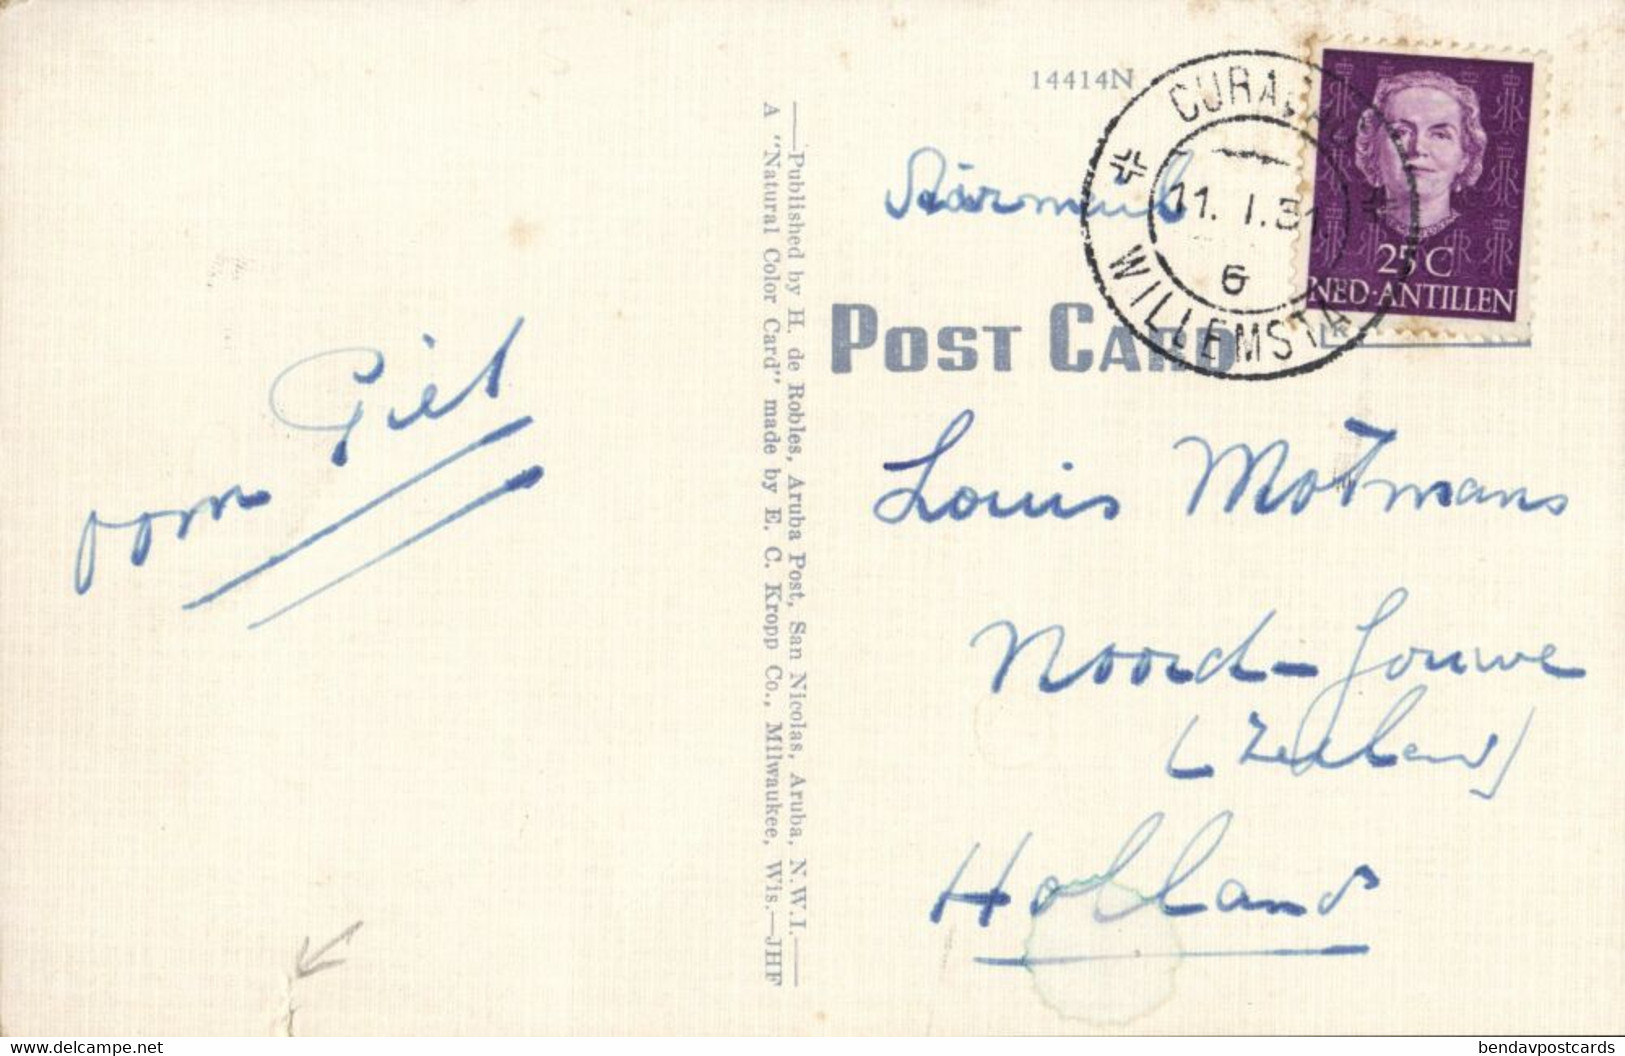 14414N
CURA
WILLEMSTA
11. 1.51
6
25 C
NED-ANTILLEN
POST CARD
oom Piet
Louis Motmans
Noord-Gouwe
(Zeeland)
Holland
—Published by H. de Robles, Aruba Post, San Nicolas, Aruba, N.W.I.—
A "Natural Color Card" made by E. C. Kropp Co., Milwaukee, Wis.—JHF
www.delcampe.net
bendavpostcards